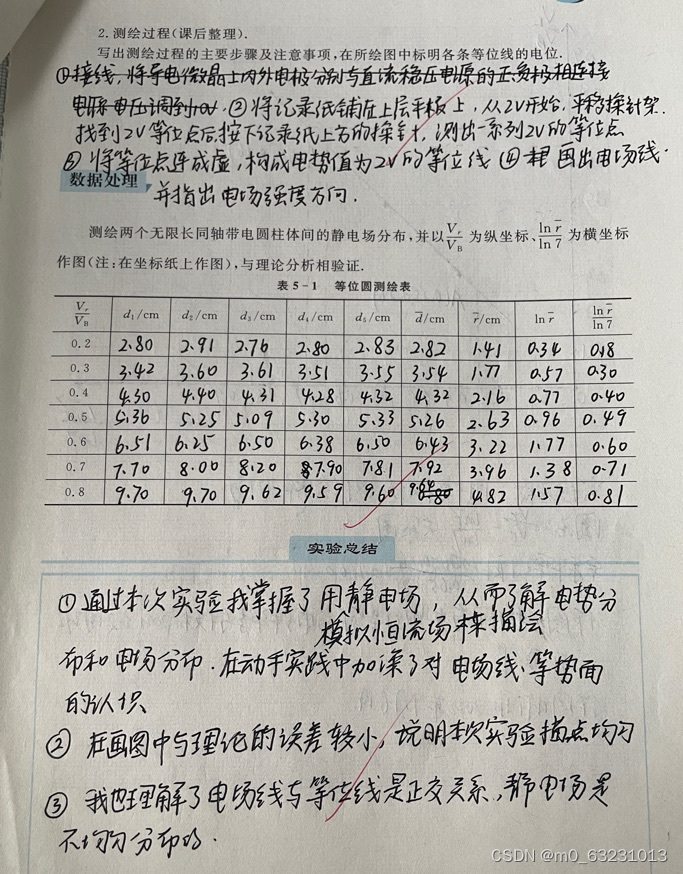 2. 测绘过程(课后整理).
写出测绘过程的主要步骤及注意事项,在所绘图中标明各条等位线的电位.
①接线,将导电微晶上内外电极分别与直流稳压电源的正负极相连接
电源电压调到10V ②将记录纸铺在上层平板上,从2V开始,平移探针架,
找到2V等位点后,按下记录纸上方的探针,测出一系列2V的等位点
③将等位点连成虚,构成电势值为2V的等位线 ④ 画出电场线.
数据处理
并指出电场强度方向.
测绘两个无限长同轴带电圆柱体间的静电场分布,并以 Vr/VB 为纵坐标、ln r̄/ln 7 为横坐标
作图(注:在坐标纸上作图),与理论分析相验证.
表 5-1 等位圆测绘表
Vr/VB d₁/cm d₂/cm d₃/cm d₄/cm d₅/cm d̄/cm r̄/cm ln r̄ ln r̄/ln 7
0.2 2.80 2.91 2.76 2.80 2.83 2.82 1.41 0.34 0.18
0.3 3.42 3.60 3.61 3.51 3.55 3.54 1.77 0.57 0.30
0.4 4.30 4.40 4.31 4.28 4.32 4.32 2.16 0.77 0.40
0.5 5.36 5.25 5.09 5.30 5.33 5.26 2.63 0.96 0.49
0.6 6.51 6.25 6.50 6.38 6.50 6.43 3.22 1.77 0.60
0.7 7.70 8.00 8.20 7.90 7.81 7.92 3.96 1.38 0.71
0.8 9.70 9.70 9.62 9.59 9.60 9.64 4.82 1.57 0.81
实验总结
①通过本次实验我掌握了用静电场,从而了解电势分
模拟恒流场来描绘
布和电场分布.在动手实践中加深了对电场线、等势面
的认识
② 在画图中与理论的误差较小,说明本次实验描点均匀
③ 我也理解了电场线与等位线是正交关系,静电场是
不均匀分布的.
CSDN @m0_63231013